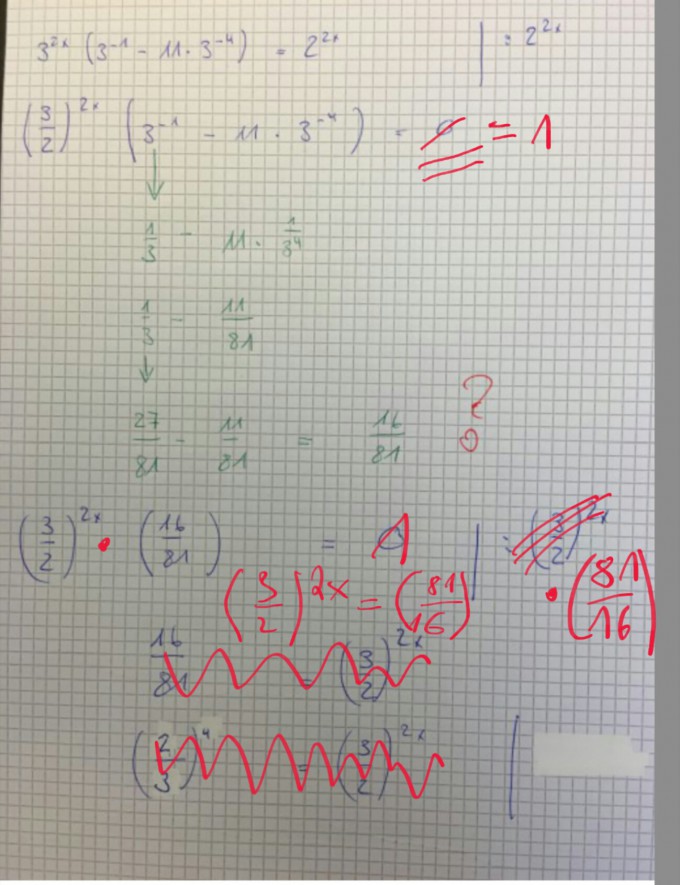 3^2x (3^-1 - 11 · 3^-4) = 2^2x | : 2^2x
(3/2)^2x (3^-1 - 11 · 3^-4) = 0 = 1
1/3 - 11 · 1/3^4
1/3 - 11/81
27/81 - 11/81 = 16/81 ?
(3/2)^2x · (16/81) = 1 | : (3/2)^2x
(3/2)^2x = (81/16) · (81/16)
16/81 = (3/2)^2x
(2/3)^4 = (3/2)^2x |